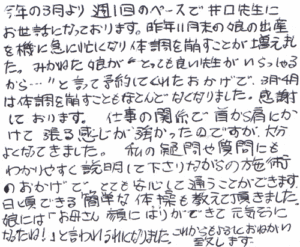 今年の3月より 週1回のペースで 井口先生に
お世話になっております。昨年11月末の娘の出産
を機に急に忙しくなり体調を崩すことが増えまし
た。みかねた娘が"とっても良い先生がいらっしゃる
から…"と言って予約してくれたおかげで、3月4月
は体調を崩すこともほとんどなくなりました。感謝
しております。 仕事の関係で首から肩にか
けて張る感じが強かったのですが、大分
よくなってきました。 私の疑問や質問にも
わかりやすく説明して下さりながらの施術
のおかげで、とても安心して通うことができます。
日頃できる簡単な体操も教えて頂きました。
娘には「お母さん 顔にはりがでてきて元気そうに
なったね!」と言われうれしくなりました。これからもよろしくおねがい
致します。